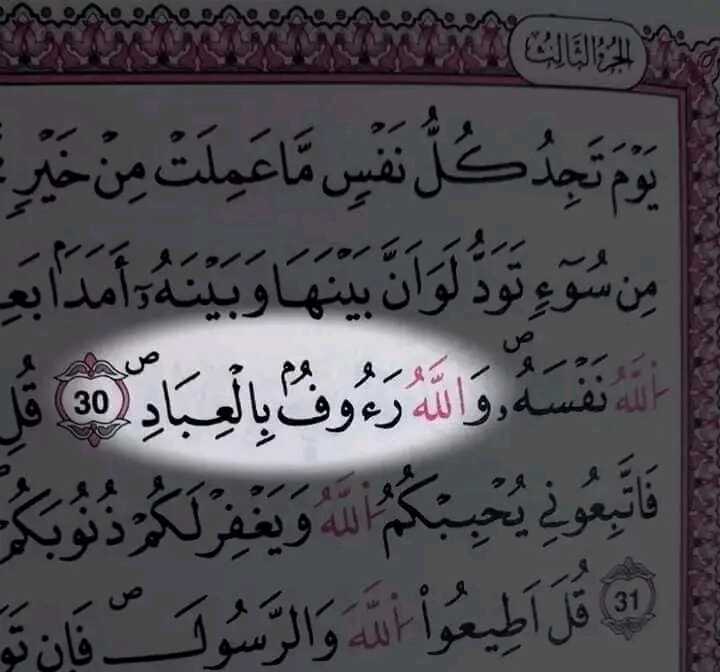 الجزء الثالث
يَوْمَ تَجِدُ كُلُّ نَفْسٍ مَّا عَمِلَتْ مِنْ خَيْرٍ
مِن سُوٓءٍ تَوَدُّ لَوَ اَنَّ بَيْنَهَا وَبَيْنَهُۥٓ أَمَدَۢا
اللَّهُ نَفْسَهُۥ ۖ وَاللَّهُ رَءُوفُۢ بِالْعِبَادِ ۖ 30 قُلِ
فَاتَّبِعُونِي يُحْبِبْكُمُ اللَّهُ وَيَغْفِرْ لَكُمْ ذُنُوبَكُمْ
31 قُلَ اَطِيعُواْ اللَّهَ وَالرَّسُولَ ۖ فَإِن